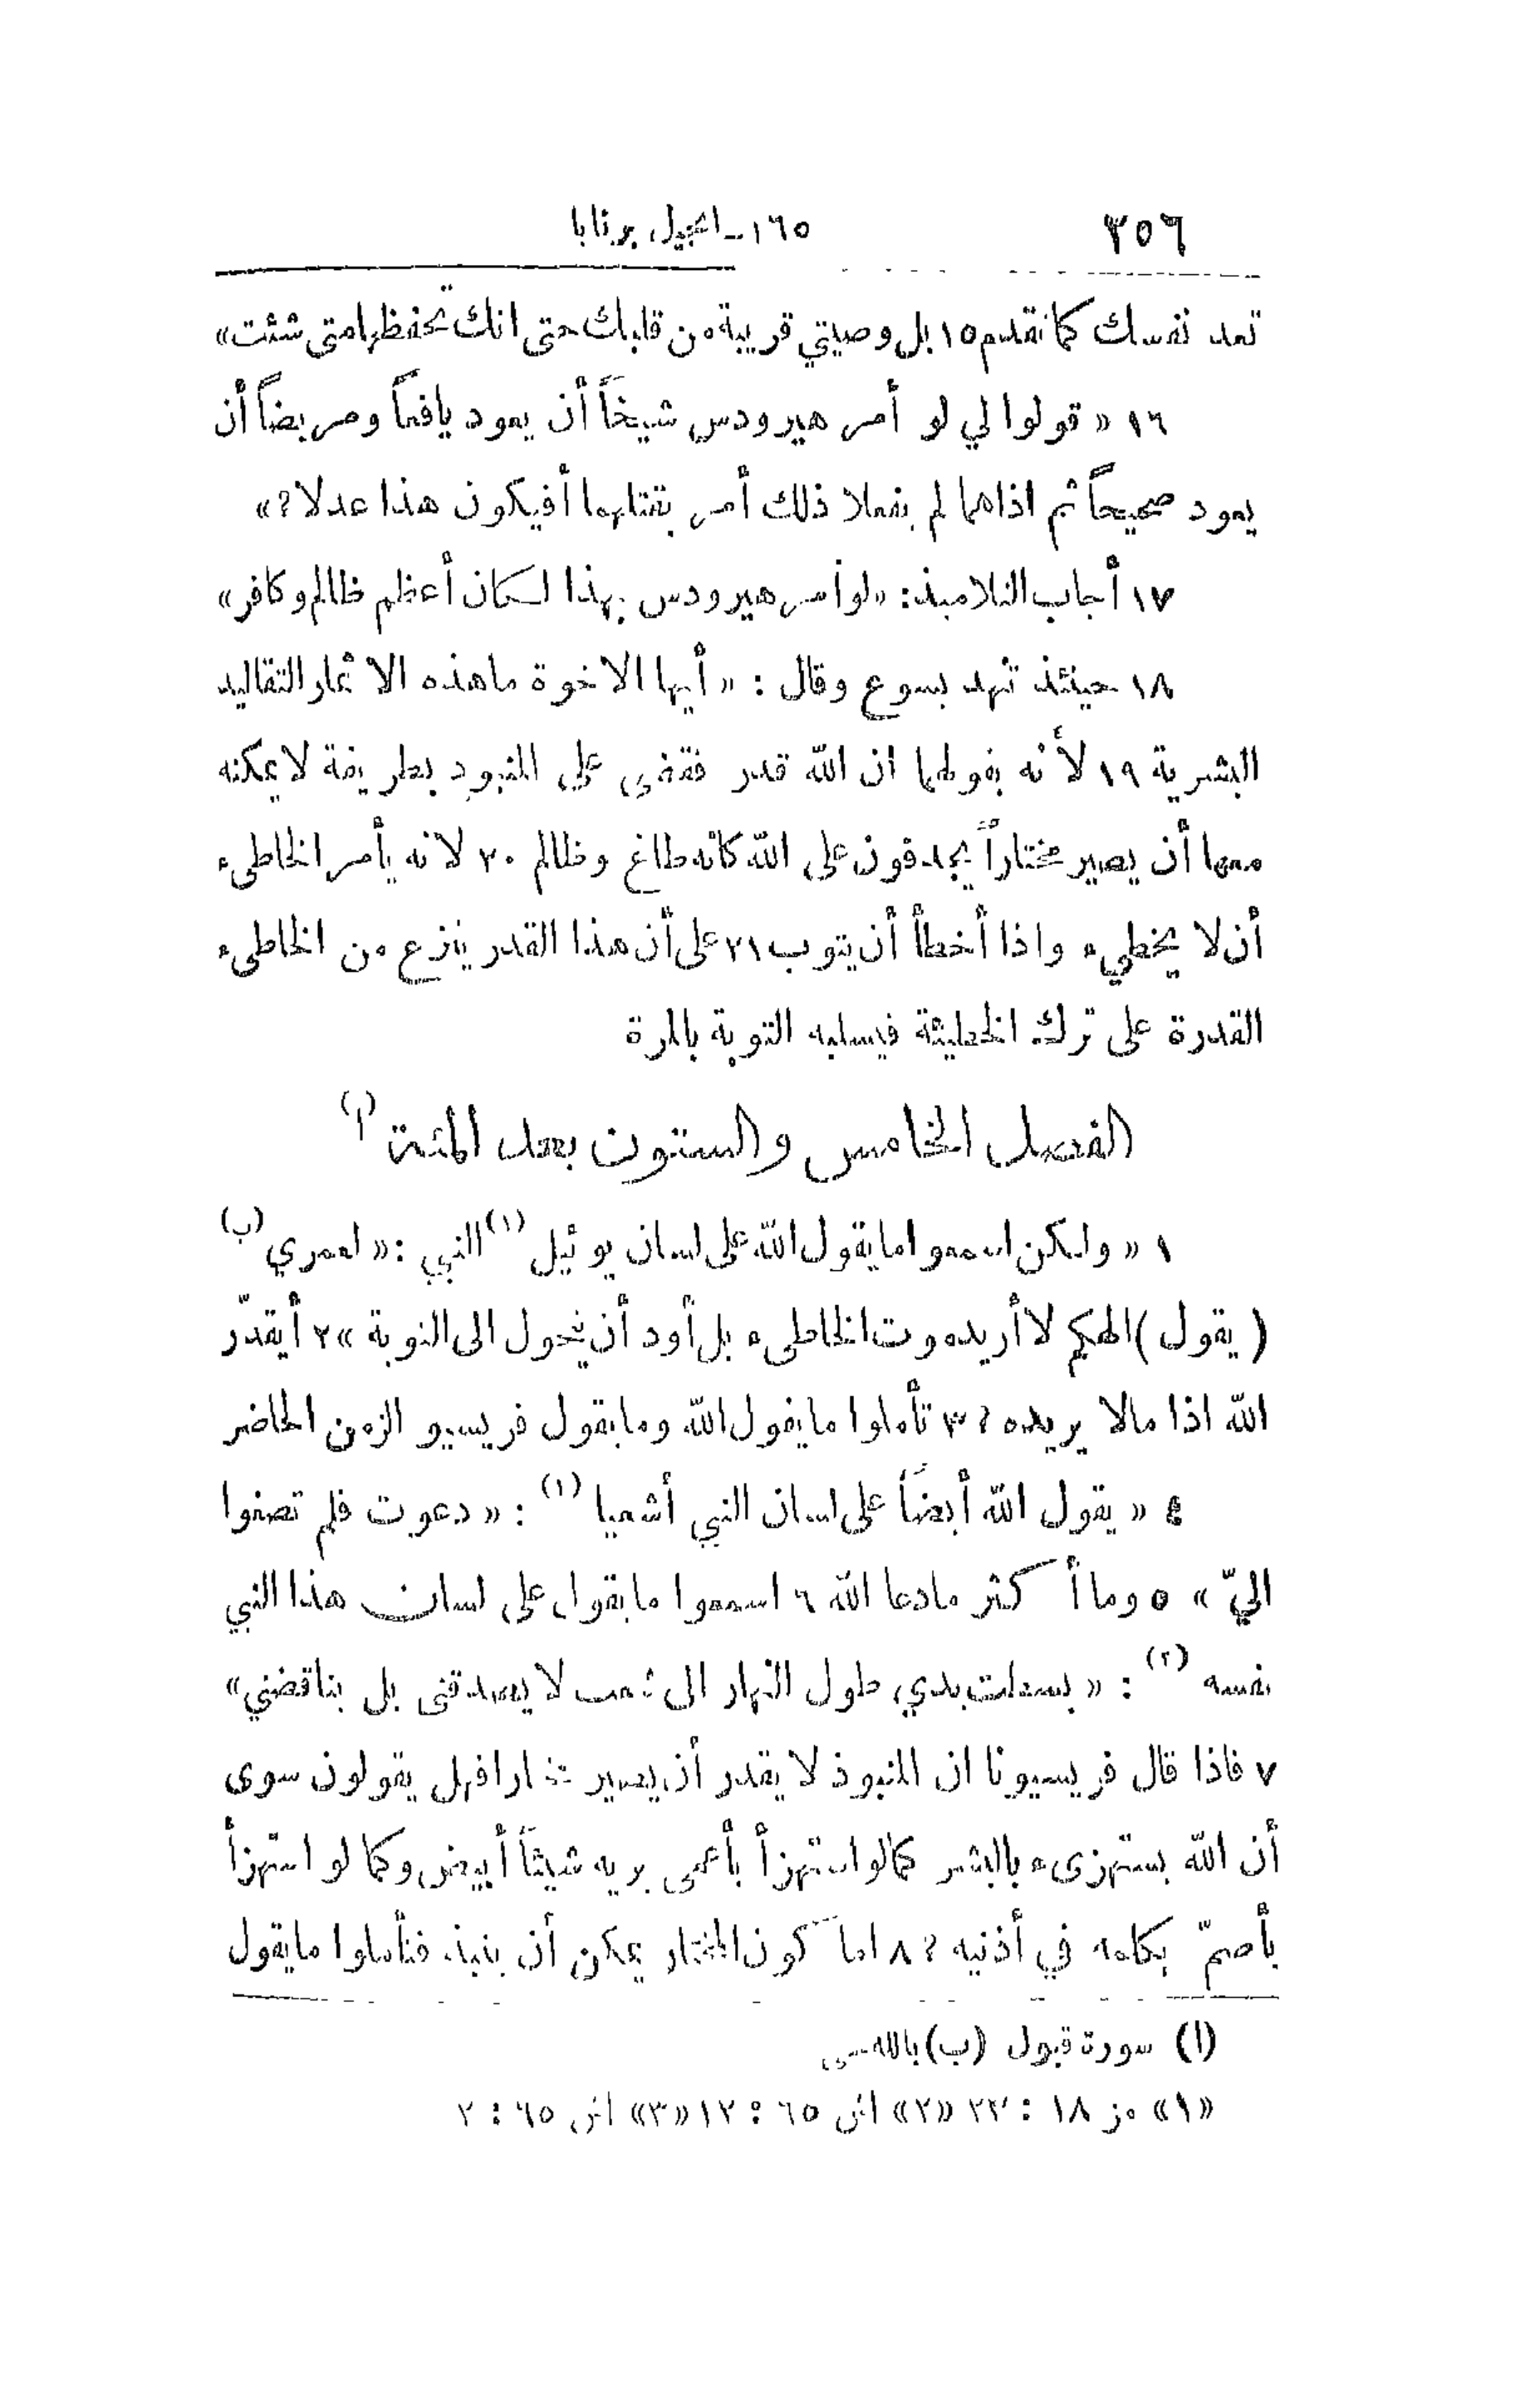 ٢٥٦ ١٦٥ــانجيل برنابا
تعد نفسك كما تقدم ١٥ بل وصيتي قريبة من قلبك حتى انك تحفظها متى شئت»
١٦ « قولوا لي لو أمر هيرودس شيخاً أن يعود يافعاً ومريضاً أن
يعود صحيحاً ثم اذا هما لم يفعلا ذلك أمر بقتلهما أفيكون هذا عدلا ؟»
١٧ أجاب التلاميذ: «لو أمر هيرودس بهذا لكان أعظم ظالم وكافر»
١٨ حينئذ تنهد يسوع وقال : « أيها الاخوة ما هذه الا ثمار التقاليد
البشرية ١٩ لأنه بقولهما ان الله قدر فقضى على المنبوذ بطريقة لا يمكنه
معها أن يصير مختاراً يجدفون على الله كأنه طاغ وظالم ٢٠ لانه يأمر الخاطىء
أن لا يخطيء واذا أخطأ أن يتوب ٢١ على أن هذا القدر ينزع من الخاطىء
القدرة على ترك الخطيئة فيسلبه التوبة بالمرة
الفصل الخامس والستون بعد المئة (ا)
١ « ولكن اسمعوا ما يقول الله على لسان يوئيل (١) النبي : « لعمري (ب)
( يقول ) الهكم لا أريد موت الخاطىء بل أود أن يتحول الى التوبة » ٢ أيقدّر
الله اذا ما لا يريده ؟ ٣ تأملوا ما يقول الله وما يقول فريسيو الزمن الحاضر
٤ « يقول الله أيضاً على لسان النبي أشعيا (١) : « دعوت فلم تصغوا
اليّ » ٥ وما أكثر ما دعا الله ٦ اسمعوا ما يقول على لسان هذا النبي
نفسه (٢) : « بسطت يدي طول النهار الى شعب لا يصدقنى بل يناقضني»
٧ فاذا قال فريسيونا ان المنبوذ لا يقدر أن يصير مختارا فهل يقولون سوى
أن الله يستهزىء بالبشر كما لو استهزأ بأعمى يريه شيئاً أبيض وكما لو استهزأ
بأصمّ يكلمه في أذنيه ؟ ٨ اما كون المختار يمكن أن ينبذ فتأملوا ما يقول
(ا) سورة قبول (ب) بالله
«١» مز ١٨ : ٢٣ «٢» اش ٦٥ : ١٢ «٣» اش ٦٥ : ٢